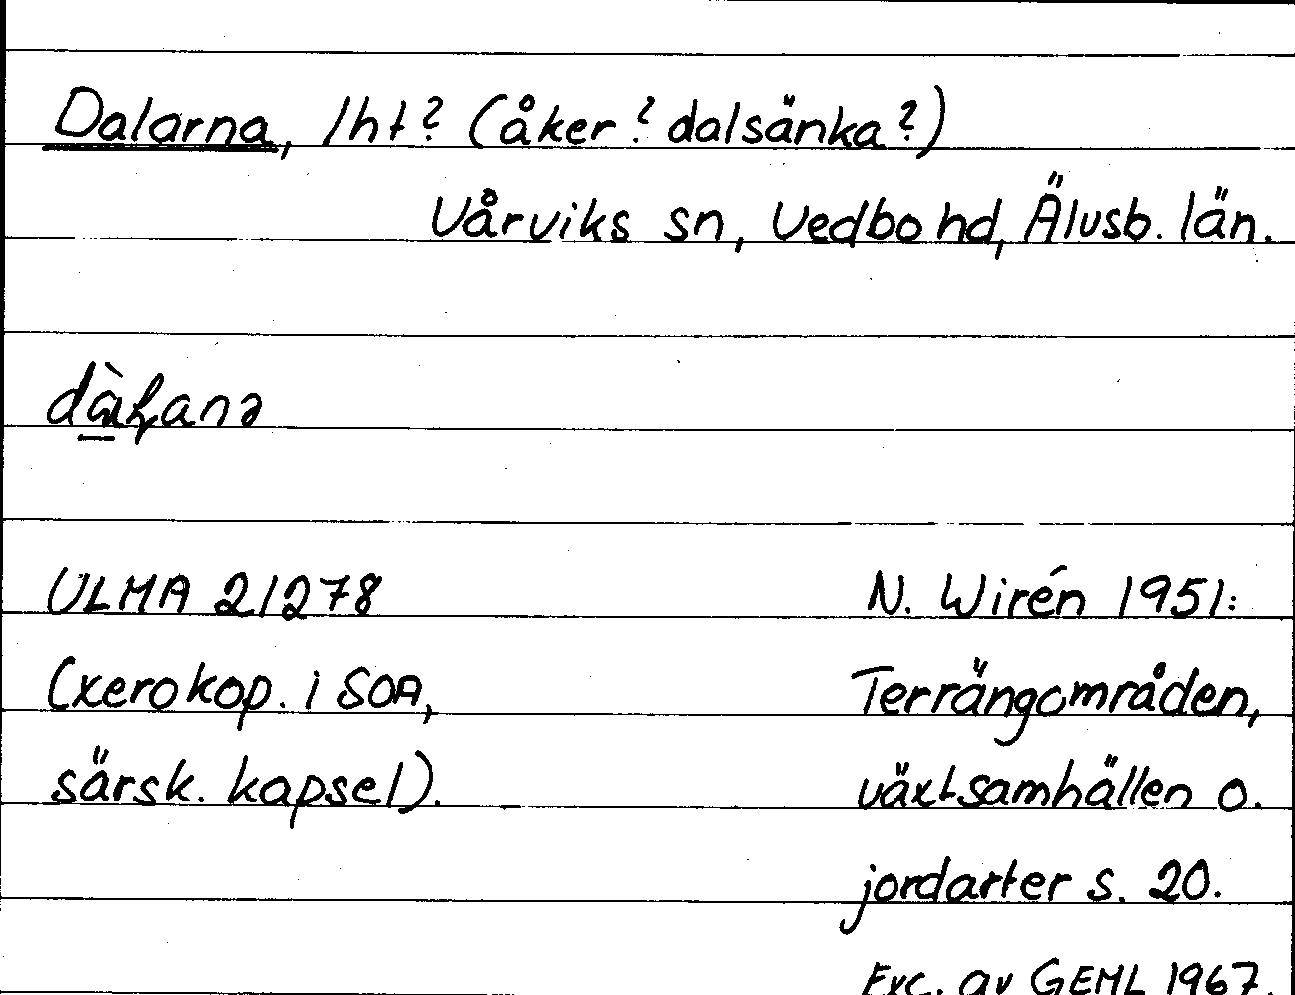 Dalarna, lht? (åker? dalsänka?)
Vårviks sn, Vedbo hd, Älvsb. län.
ULMA 21278
(xerokop. i SOA,
särsk. kapsel).
N. Wirén 1951:
Terrängområden,
växtsamhällen o.
jordarter s. 20.
Exc. av GEML 1967.